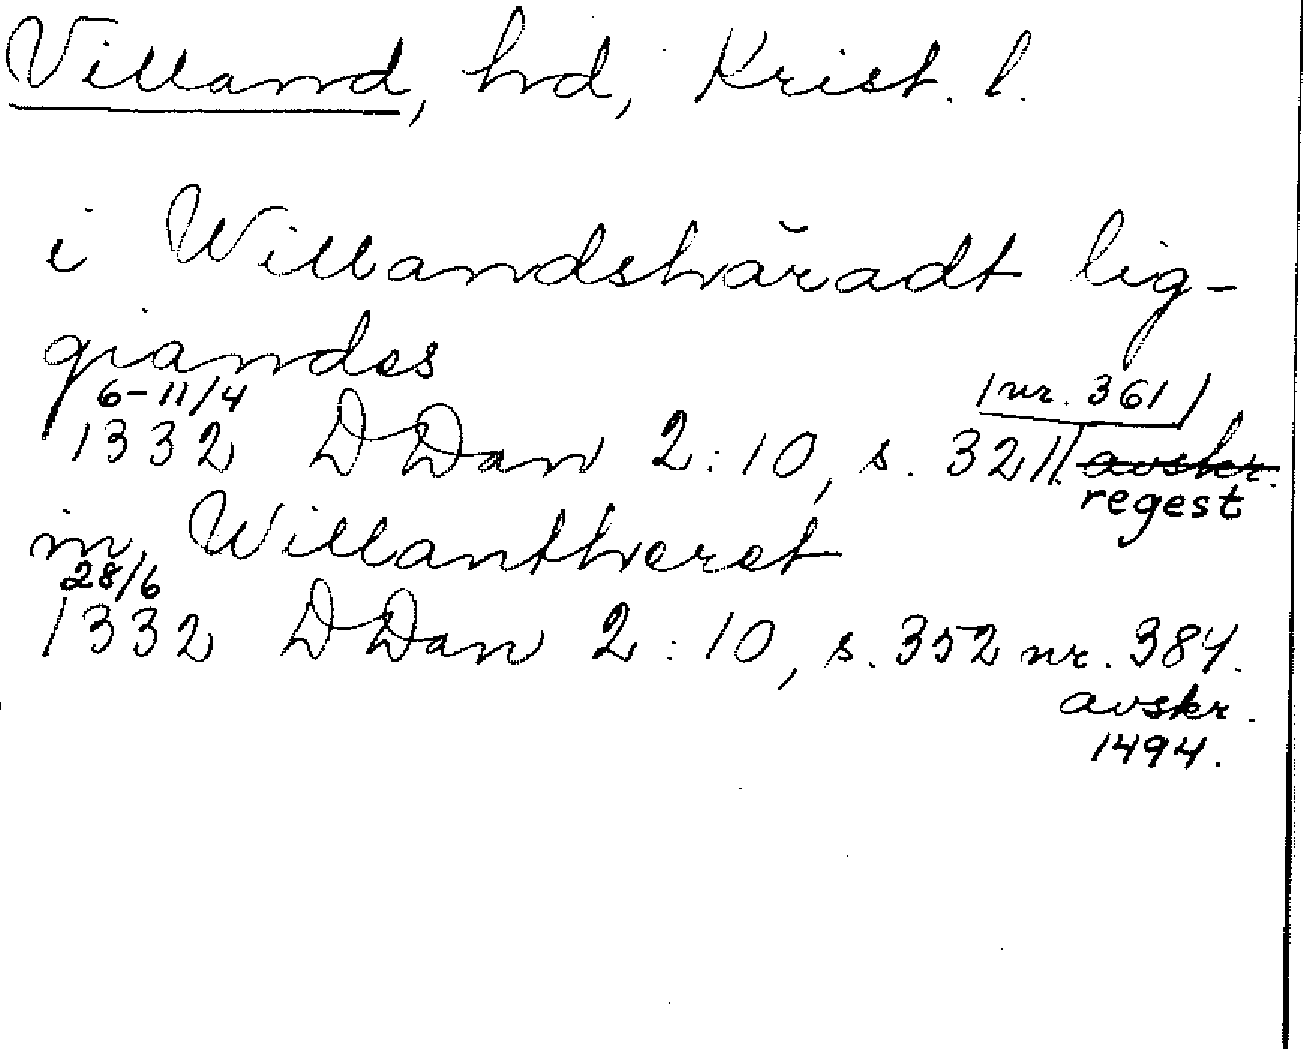 Villand, hd, Krist. l.
i Willandshäradt lig-
giandes
6-11/4
1332 DDan 2:10, s. 321 /nr. 361/ avskr.
regest
in Willanthæret
28/6
1332 DDan 2:10, s. 352 nr. 384.
avskr.
1494.